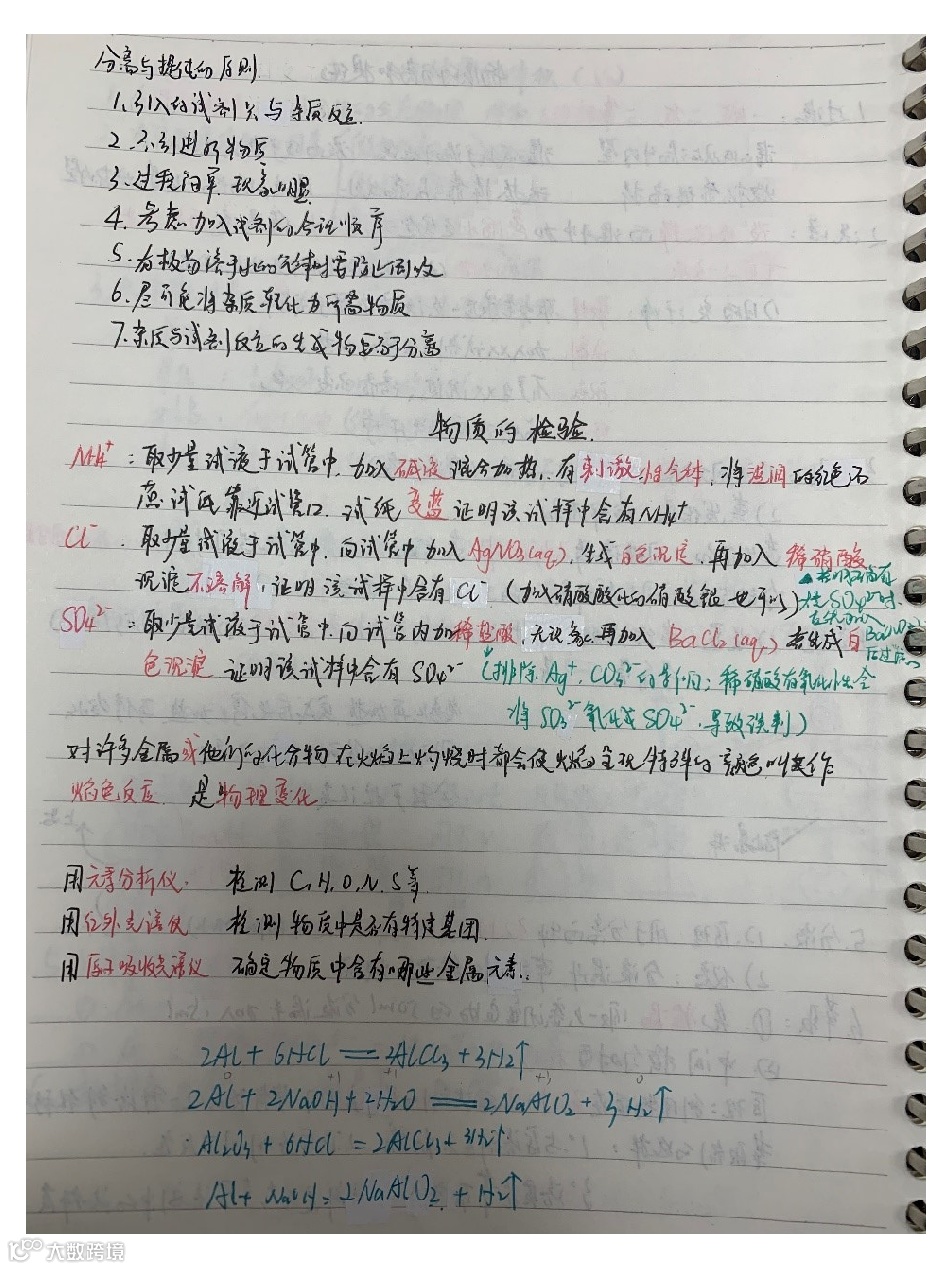 分离与提纯的原则
1.引入的试剂只与杂质反应.
2.不引进新物质
3.过程简单.现象明显
4.考虑加入试剂的合理顺序
5.有极易溶于水的气体时要防止倒吸
6.尽可能将杂质转化为所需物质
7.杂质与试剂反应的生成物要易于分离
物质的检验.
NH4⁺：取少量试液于试管中.加入碱液混合加热.有刺激性气体,将湿润的红色石
蕊试纸靠近试管口.试纸变蓝证明该试样中含有NH4⁺
Cl⁻ 取少量试液于试管中.向试管中加入AgNO3(aq),生成白色沉淀,再加入稀硝酸
沉淀不溶解,证明该试样中含有Cl⁻(加入硝酸酸化的硝酸银也可以)
SO4²⁻：取少量试液于试管中.向试管内加稀盐酸,无现象.再加入BaCl2(aq)若生成白
色沉淀 证明该试样中含有SO4²⁻(排除Ag⁺,CO3²⁻的影响;稀硝酸有氧化性会
将SO3²⁻氧化成SO4²⁻,导致误判)
对许多金属或他们的化合物在火焰上灼烧时都会使火焰呈现特殊的颜色叫其作
焰色反应. 是物理变化
用元素分析仪. 检测C,H,O,N,S等
用红外光谱仪 检测物质中是否有特定基团.
用原子吸收光谱仪 确定物质中含有哪些金属元素.
2Al+6HCl=2AlCl3+3H2↑
2Al+2NaOH+2H2O=2NaAlO2+3H2↑
Al2O3+6HCl=2AlCl3+3H2↑
Al+NaOH=2NaAlO2+H2↑
大数跨境